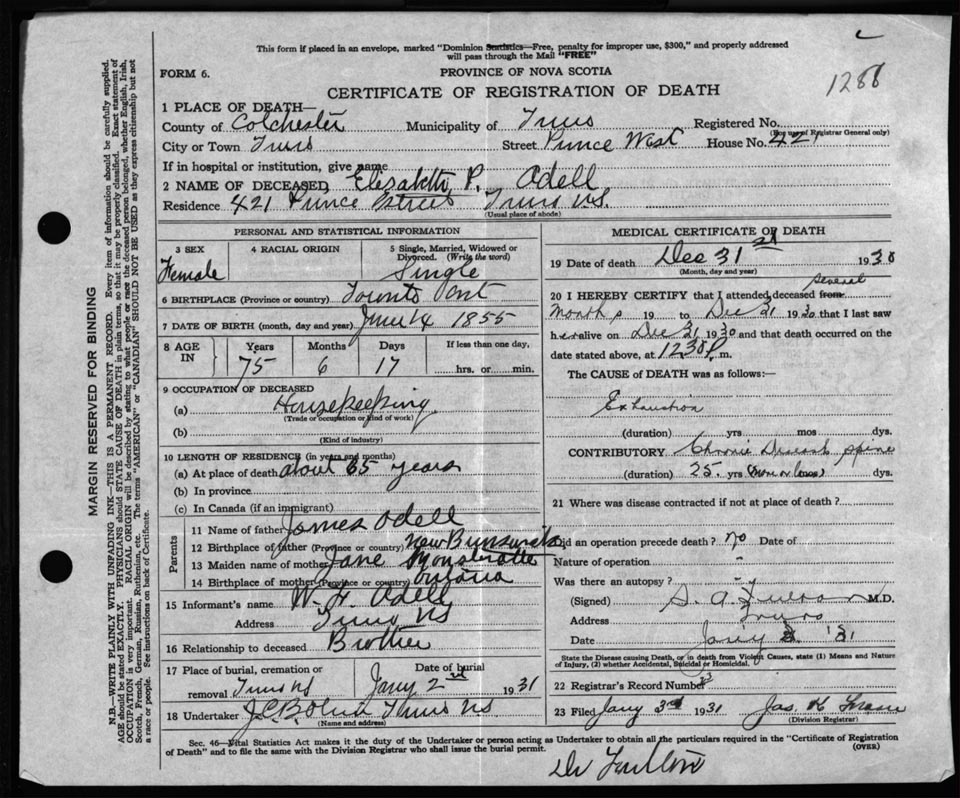 This form if placed in an envelope, marked "Dominion Statistics—Free, penalty for improper use, $300," and properly addressed
will pass through the Mail "FREE"
FORM 6. PROVINCE OF NOVA SCOTIA
CERTIFICATE OF REGISTRATION OF DEATH
1288
1 PLACE OF DEATH—
County of Colchester Municipality of Truro Registered No.
(For use of Registrar General only)
City or Town Truro Street Prince West House No. 421
If in hospital or institution, give name
2 NAME OF DECEASED Elizabeth P. Odell
Residence 421 Prince Street Truro N.S.
(Usual place of abode)
PERSONAL AND STATISTICAL INFORMATION
3 SEX 4 RACIAL ORIGIN 5 Single, Married, Widowed or Divorced. (Write the word)
Female Single
6 BIRTHPLACE (Province or country) Toronto Ont
7 DATE OF BIRTH (month, day and year) June 14 1855
8 AGE IN Years Months Days If less than one day,
75 6 17 hrs. or min.
9 OCCUPATION OF DECEASED
(a) Housekeeping
(Trade or occupation or kind of work)
(b)
(Kind of industry)
10 LENGTH OF RESIDENCE (in years and months)
(a) At place of death about 65 years
(b) In province
(c) In Canada (if an immigrant)
Parents
11 Name of father James Odell
12 Birthplace of father (Province or country) New Bunswick
13 Maiden name of mother Jane
14 Birthplace of mother (Province or country) Ontario
15 Informant's name W. H. Odell
Address Truro NS
16 Relationship to deceased Brother
17 Place of burial, cremation or removal Truro NS Date of burial Jany 2nd 1931
18 Undertaker Truro NS
(Name and address)
MEDICAL CERTIFICATE OF DEATH
19 Date of death Dec 31st 1930
(Month, day and year)
20 I HEREBY CERTIFY that I attended deceased from several
months 19 to Dec 31 1930 that I last saw
her alive on Dec 31 1930 and that death occurred on the
date stated above, at 12.30 P. m.
The CAUSE of DEATH was as follows:—
Exhaustion
(duration) yrs mos dys.
CONTRIBUTORY Chronic Disease spine
(duration) 25 yrs (more or less) dys.
21 Where was disease contracted if not at place of death?
Did an operation precede death? no Date of
Nature of operation -
Was there an autopsy? -
(Signed) S. A. Fulton M.D.
Address Truro
Date Jany '31
State the Disease causing Death, or in death from Violent Causes, state (1) Means and Nature
of Injury, (2) whether Accidental, Suicidal or Homicidal.
22 Registrar's Record Number
23 Filed Jany 3rd 1931 Jas. K Fraser
(Division Registrar)
Sec. 46—Vital Statistics Act makes it the duty of the Undertaker or person acting as Undertaker to obtain all the particulars required in the "Certificate of Registration
of Death" and to file the same with the Division Registrar who shall issue the burial permit. (OVER)
Dr Fulton
MARGIN RESERVED FOR BINDING
N.B.—WRITE PLAINLY WITH UNFADING INK—THIS IS A PERMANENT RECORD. Every item of information should be carefully supplied.
AGE should be stated EXACTLY. PHYSICIANS should STATE CAUSE OF DEATH in plain terms, so that it may be properly classified. Exact statement of
OCCUPATION is very important. RACIAL ORIGIN will be described by stating to what people or race the deceased person belonged, whether English, Irish,
Scotch, French, German, Russian, Ruthenian, etc. The terms "AMERICAN" or "CANADIAN" SHOULD NOT BE USED as they express citizenship but not
a race or people. See instructions on back of Certificate.